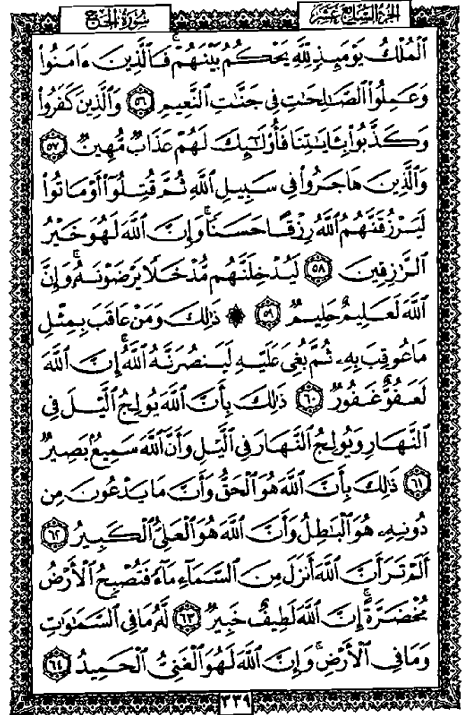 الجزء السابع عشر سورة الحج
ٱلْمُلْكُ يَوْمَئِذٍ لِّلَّهِ يَحْكُمُ بَيْنَهُمْ ۚ فَٱلَّذِينَ ءَامَنُوا۟
وَعَمِلُوا۟ ٱلصَّـٰلِحَـٰتِ فِى جَنَّـٰتِ ٱلنَّعِيمِ ٥٦ وَٱلَّذِينَ كَفَرُوا۟
وَكَذَّبُوا۟ بِـَٔايَـٰتِنَا فَأُو۟لَـٰٓئِكَ لَهُمْ عَذَابٌ مُّهِينٌ ٥٧
وَٱلَّذِينَ هَاجَرُوا۟ فِى سَبِيلِ ٱللَّهِ ثُمَّ قُتِلُوٓا۟ أَوْ مَاتُوا۟
لَيَرْزُقَنَّهُمُ ٱللَّهُ رِزْقًا حَسَنًا ۚ وَإِنَّ ٱللَّهَ لَهُوَ خَيْرُ
ٱلرَّٰزِقِينَ ٥٨ لَيُدْخِلَنَّهُم مُّدْخَلًا يَرْضَوْنَهُۥ ۗ وَإِنَّ
ٱللَّهَ لَعَلِيمٌ حَلِيمٌ ٥٩ ۞ ذَٰلِكَ وَمَنْ عَاقَبَ بِمِثْلِ
مَا عُوقِبَ بِهِۦ ثُمَّ بُغِىَ عَلَيْهِ لَيَنصُرَنَّهُ ٱللَّهُ ۗ إِنَّ ٱللَّهَ
لَعَفُوٌّ غَفُورٌ ٦٠ ذَٰلِكَ بِأَنَّ ٱللَّهَ يُولِجُ ٱلَّيْلَ فِى
ٱلنَّهَارِ وَيُولِجُ ٱلنَّهَارَ فِى ٱلَّيْلِ وَأَنَّ ٱللَّهَ سَمِيعٌۢ بَصِيرٌ
٦١ ذَٰلِكَ بِأَنَّ ٱللَّهَ هُوَ ٱلْحَقُّ وَأَنَّ مَا يَدْعُونَ مِن
دُونِهِۦ هُوَ ٱلْبَـٰطِلُ وَأَنَّ ٱللَّهَ هُوَ ٱلْعَلِىُّ ٱلْكَبِيرُ ٦٢
أَلَمْ تَرَ أَنَّ ٱللَّهَ أَنزَلَ مِنَ ٱلسَّمَآءِ مَآءً فَتُصْبِحُ ٱلْأَرْضُ
مُخْضَرَّةً ۗ إِنَّ ٱللَّهَ لَطِيفٌ خَبِيرٌ ٦٣ لَّهُۥ مَا فِى ٱلسَّمَـٰوَٰتِ
وَمَا فِى ٱلْأَرْضِ ۗ وَإِنَّ ٱللَّهَ لَهُوَ ٱلْغَنِىُّ ٱلْحَمِيدُ ٦٤
٣٣٩